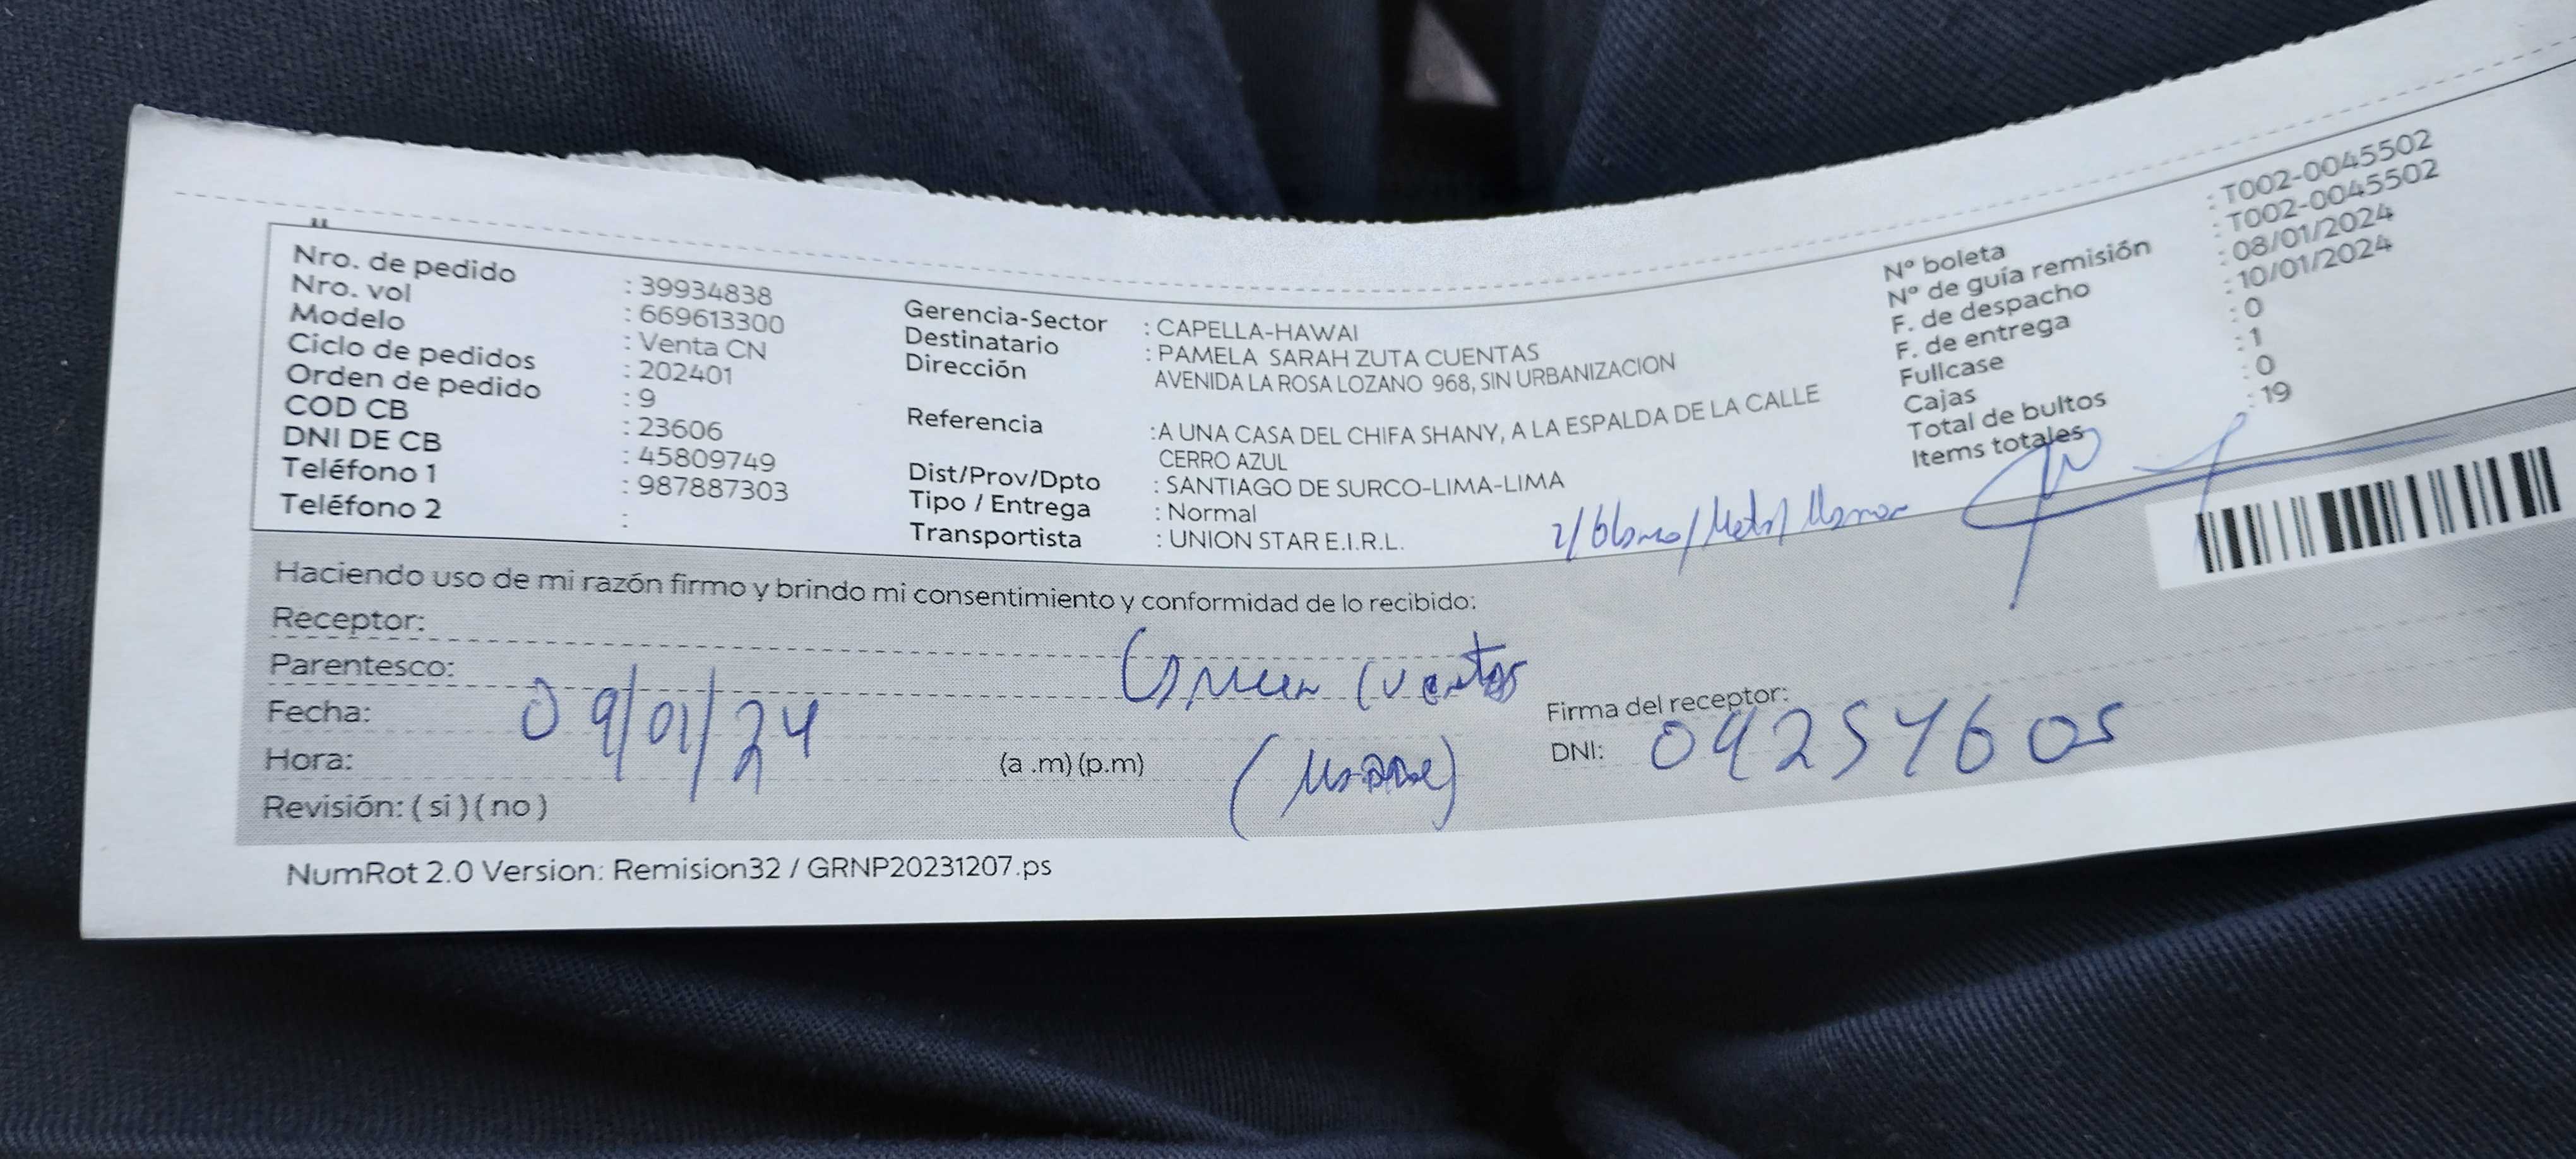 Nro. de pedido : 39934838
Nro. vol : 669613300
Modelo : Venta CN
Ciclo de pedidos : 202401
Orden de pedido : 9
COD CB : 23606
DNI DE CB : 45809749
Teléfono 1 : 987887303
Teléfono 2 :
Gerencia-Sector : CAPELLA-HAWAI
Destinatario : PAMELA SARAH ZUTA CUENTAS
Dirección AVENIDA LA ROSA LOZANO 968, SIN URBANIZACION
Referencia :A UNA CASA DEL CHIFA SHANY, A LA ESPALDA DE LA CALLE
CERRO AZUL
Dist/Prov/Dpto : SANTIAGO DE SURCO-LIMA-LIMA
Tipo / Entrega : Normal
Transportista : UNION STAR E.I.R.L.
N° boleta : T002-0045502
N° de guía remisión : T002-0045502
F. de despacho : 08/01/2024
F. de entrega : 10/01/2024
Fullcase : 0
Cajas : 1
Total de bultos : 0
Items totales : 19
Haciendo uso de mi razón firmo y brindo mi consentimiento y conformidad de lo recibido:
Receptor:
Parentesco: Cuentas
Fecha: 09/01/24
Hora: (a .m) (p.m)
Revisión: ( si ) ( no )
Firma del receptor:
DNI:
NumRot 2.0 Version: Remision32 / GRNP20231207.ps